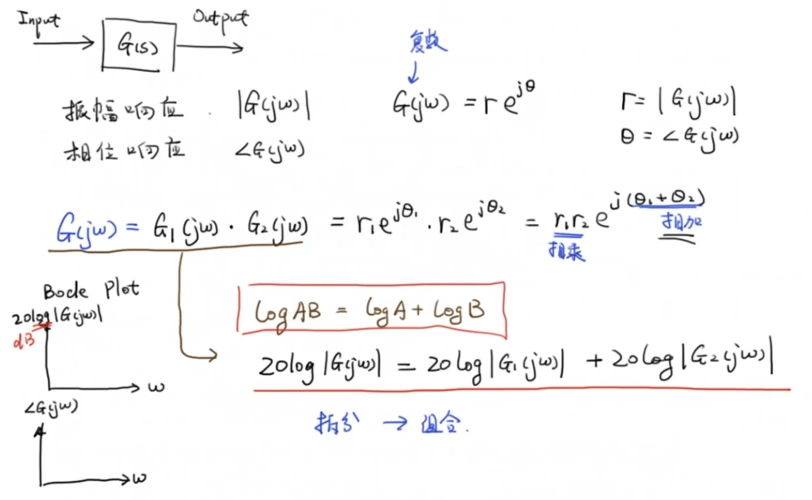 Input
Output
G(s)
复数
振幅响应 |G(jω)|
G(jω) = re^{jθ}
r = |G(jω)|
相位响应 ∠G(jω)
θ = ∠G(jω)
G(jω) = G₁(jω) · G₂(jω) = r₁e^{jθ₁} · r₂e^{jθ₂} = r₁r₂e^{j(θ₁+θ₂)}
相乘
相加
Bode Plot
20log|G(jω)|
dB
ω
logAB = logA + logB
20log|G(jω)| = 20log|G₁(jω)| + 20log|G₂(jω)|
∠G(jω)
ω
拆分 → 组合.